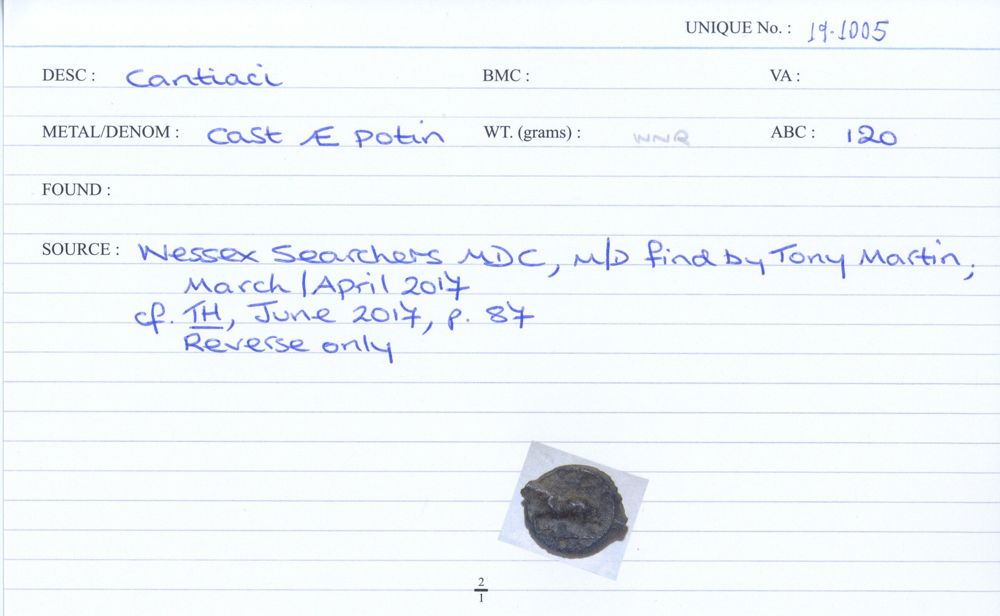 UNIQUE No. : 19.1005
DESC : Cantiaci BMC : VA :
METAL/DENOM : Cast Æ potin WT. (grams) : WNR ABC : 120
FOUND :
SOURCE : Wessex Searchers MDC, M/D find by Tony Martin,
March / April 2017
cf. TH, June 2017, p. 87
Reverse only
2
1